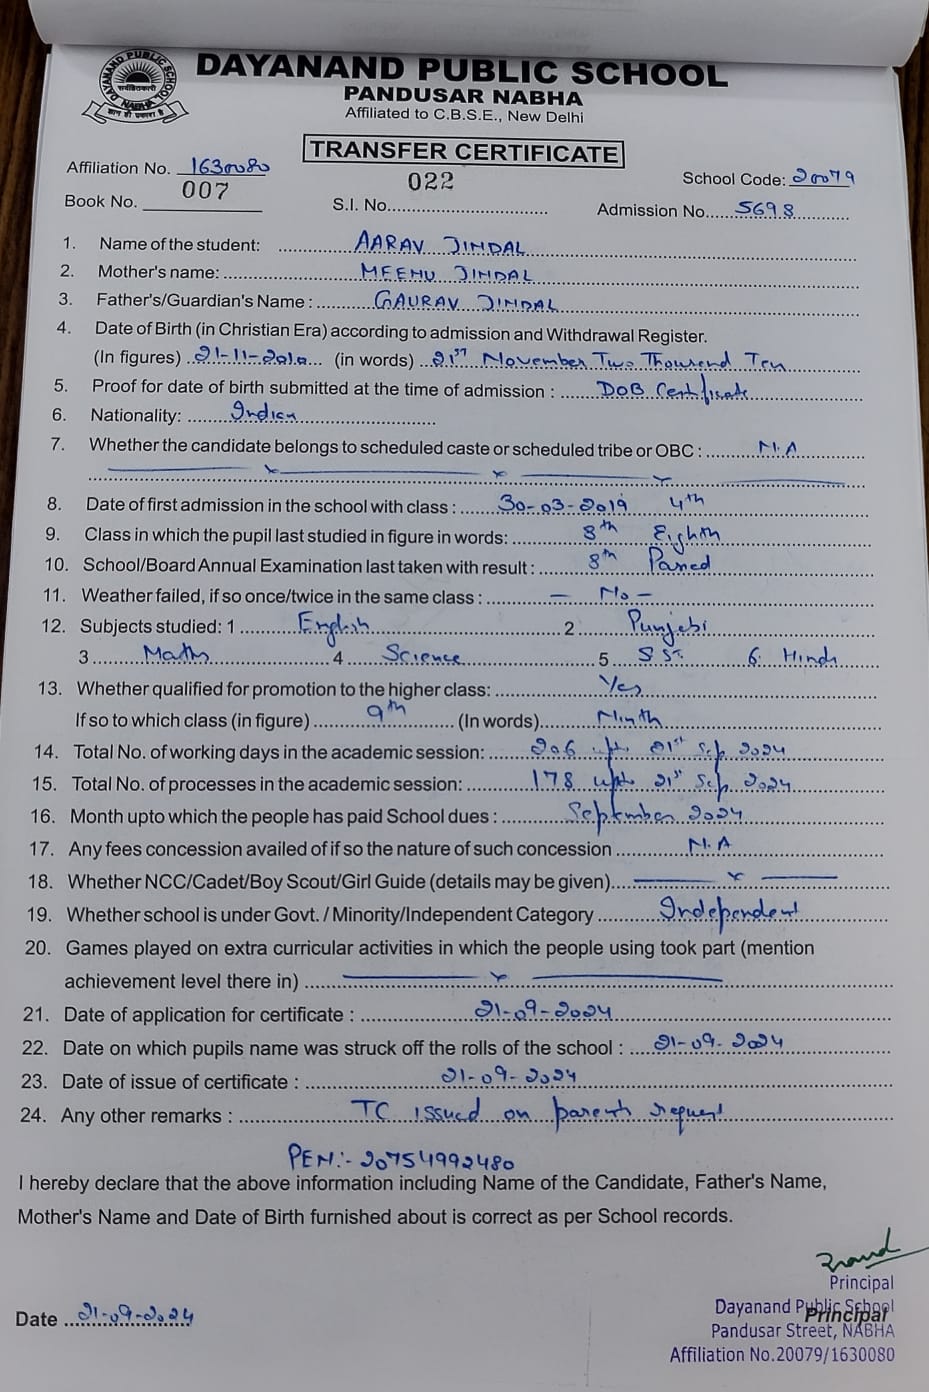 DAYANAND PUBLIC SCHOOL
DAYANAND PUBLIC SCHOOL
NABHA
PANDUSAR NABHA
Affiliated to C.B.S.E., New Delhi
TRANSFER CERTIFICATE
Affiliation No. 1630080
School Code: 20079
Book No. 007
S.I. No. 022
Admission No. 5698
1. Name of the student: AARAV JINDAL
2. Mother's name: MEENU JINDAL
3. Father's/Guardian's Name : GAURAV JINDAL
4. Date of Birth (in Christian Era) according to admission and Withdrawal Register.
(In figures) 21-11-2010 (in words) 21st November Two Thousand Ten
5. Proof for date of birth submitted at the time of admission : DOB Certificate
6. Nationality: Indian
7. Whether the candidate belongs to scheduled caste or scheduled tribe or OBC : N.A
8. Date of first admission in the school with class : 30-03-2019 4th
9. Class in which the pupil last studied in figure in words: 8th Eighth
10. School/Board Annual Examination last taken with result : 8th Passed
11. Weather failed, if so once/twice in the same class : — No —
12. Subjects studied: 1 English 2 Punjabi
3 Maths 4 Science 5 S.St. 6. Hindi
13. Whether qualified for promotion to the higher class: Yes
If so to which class (in figure) 9th (In words) Ninth
14. Total No. of working days in the academic session: 206 upto 21st Sep 2024
15. Total No. of processes in the academic session: 178 upto 21st Sep 2024
16. Month upto which the people has paid School dues : September 2024
17. Any fees concession availed of if so the nature of such concession N.A
18. Whether NCC/Cadet/Boy Scout/Girl Guide (details may be given) — x —
19. Whether school is under Govt. / Minority/Independent Category Independent
20. Games played on extra curricular activities in which the people using took part (mention
achievement level there in) — x —
21. Date of application for certificate : 21-09-2024
22. Date on which pupils name was struck off the rolls of the school : 21-09-2024
23. Date of issue of certificate : 21-09-2024
24. Any other remarks : TC issued on parents request
PEN:- 20754992480
I hereby declare that the above information including Name of the Candidate, Father's Name,
Mother's Name and Date of Birth furnished about is correct as per School records.
Principal
Dayanand Public School
Principal
Date 21-09-2024
Pandusar Street, NABHA
Affiliation No.20079/1630080